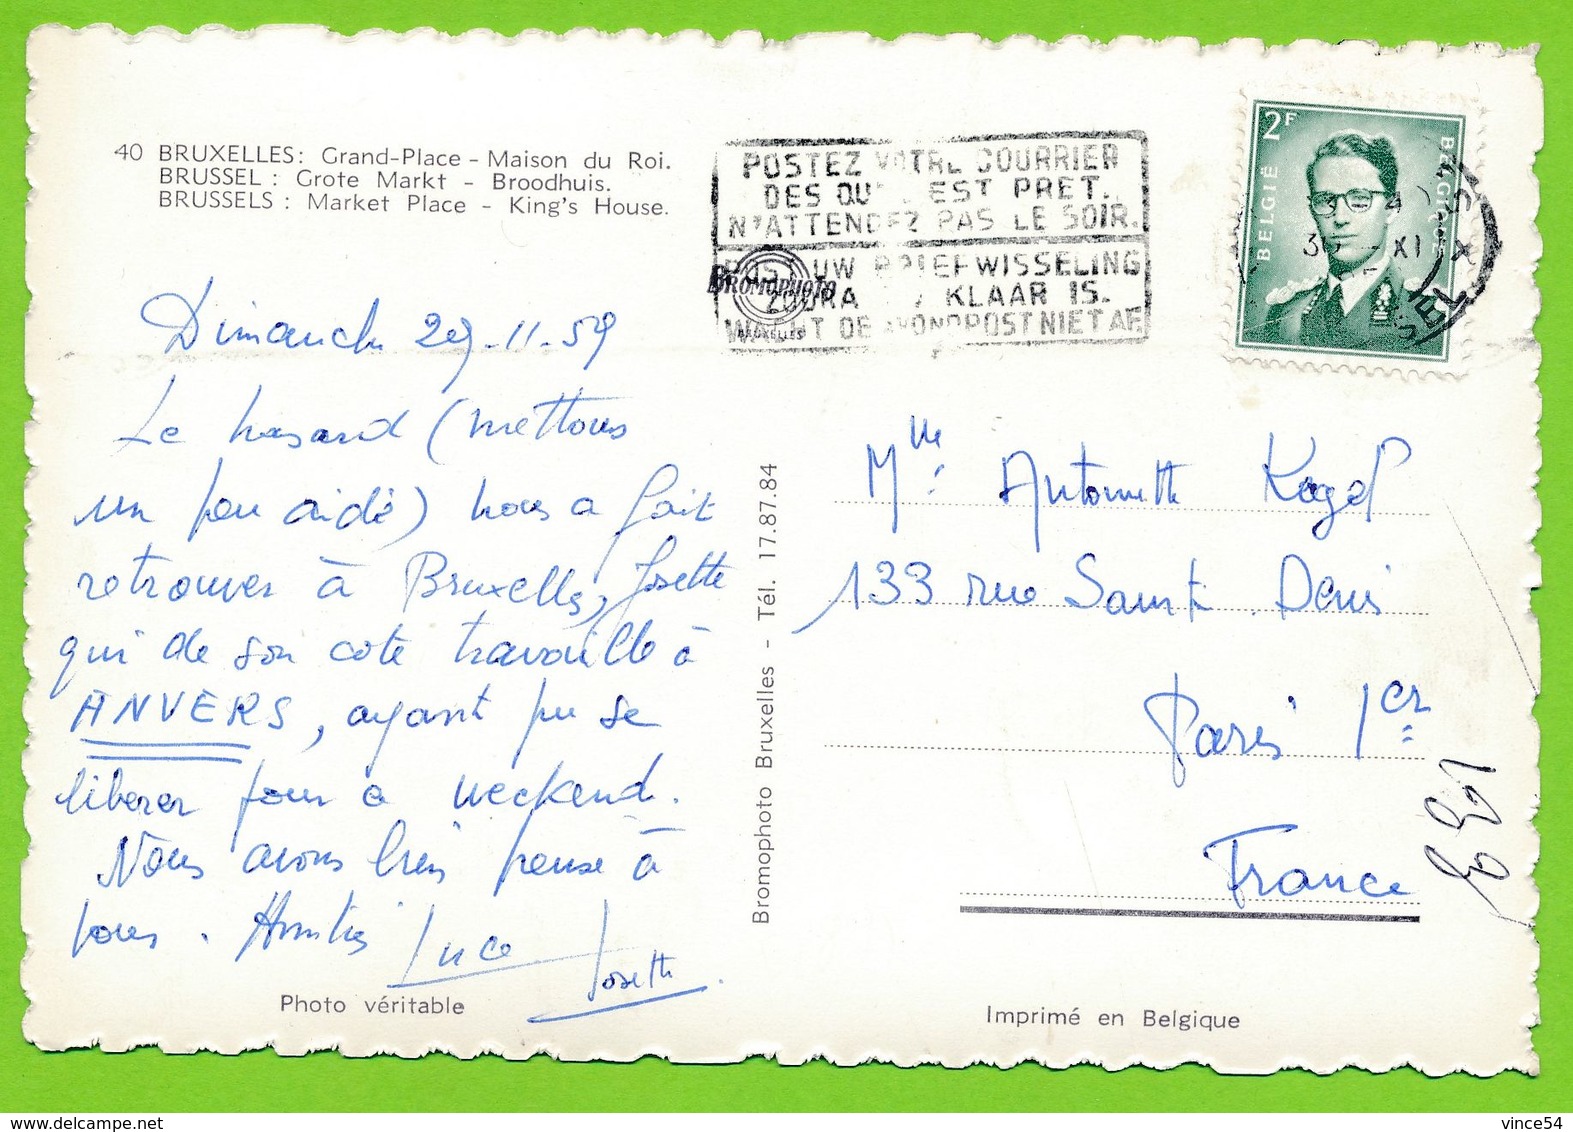 40 BRUXELLES: Grand-Place - Maison du Roi.
BRUSSEL : Grote Markt - Broodhuis.
BRUSSELS : Market Place - King's House.
POSTEZ VOTRE COURRIER
DES QU' EST PRET.
N'ATTENDEZ PAS LE SOIR.
POST UW BRIEFWISSELING
ZODRA KLAAR IS.
WACHT DE AVONDPOST NIET AF.
BROMOPHOTO
BRUXELLES
2F
BELGIË
BELGIQUE
30 XI
Dimanche 29-11-59
Le hasard (mettons
un peu aidé) nous a fait
retrouver à Bruxelles, Josette
qui de son coté travaille à
ANVERS, ayant pu se
liberer pour a weekend.
Nous avons bien pensé à
vous. Amitiés Luce
Josette
Photo véritable
Bromophoto Bruxelles - Tél. 17.87.84
Mlle Antoinette
133 rue Saint. Denis
Paris 1er
France
Imprimé en Belgique
vince54